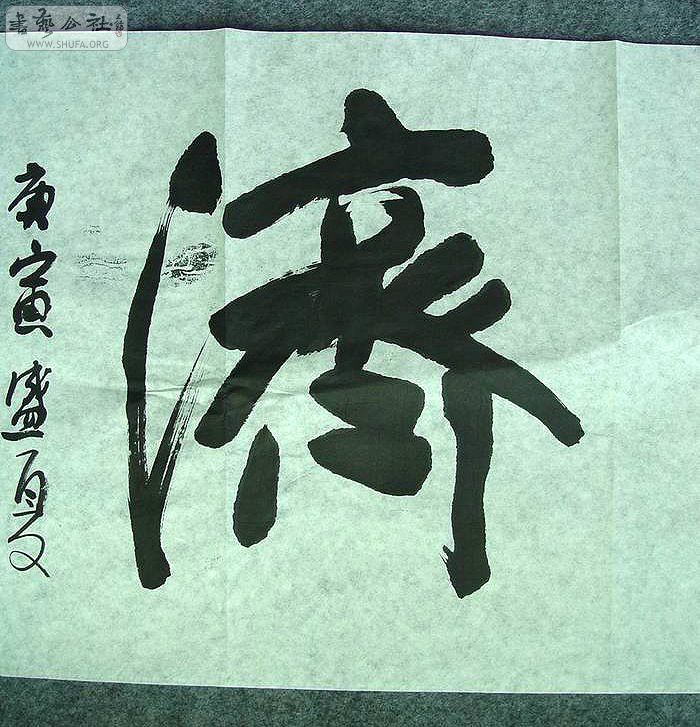 書艺公社
WWW.SHUFA.ORG
濟
庚寅盛夏